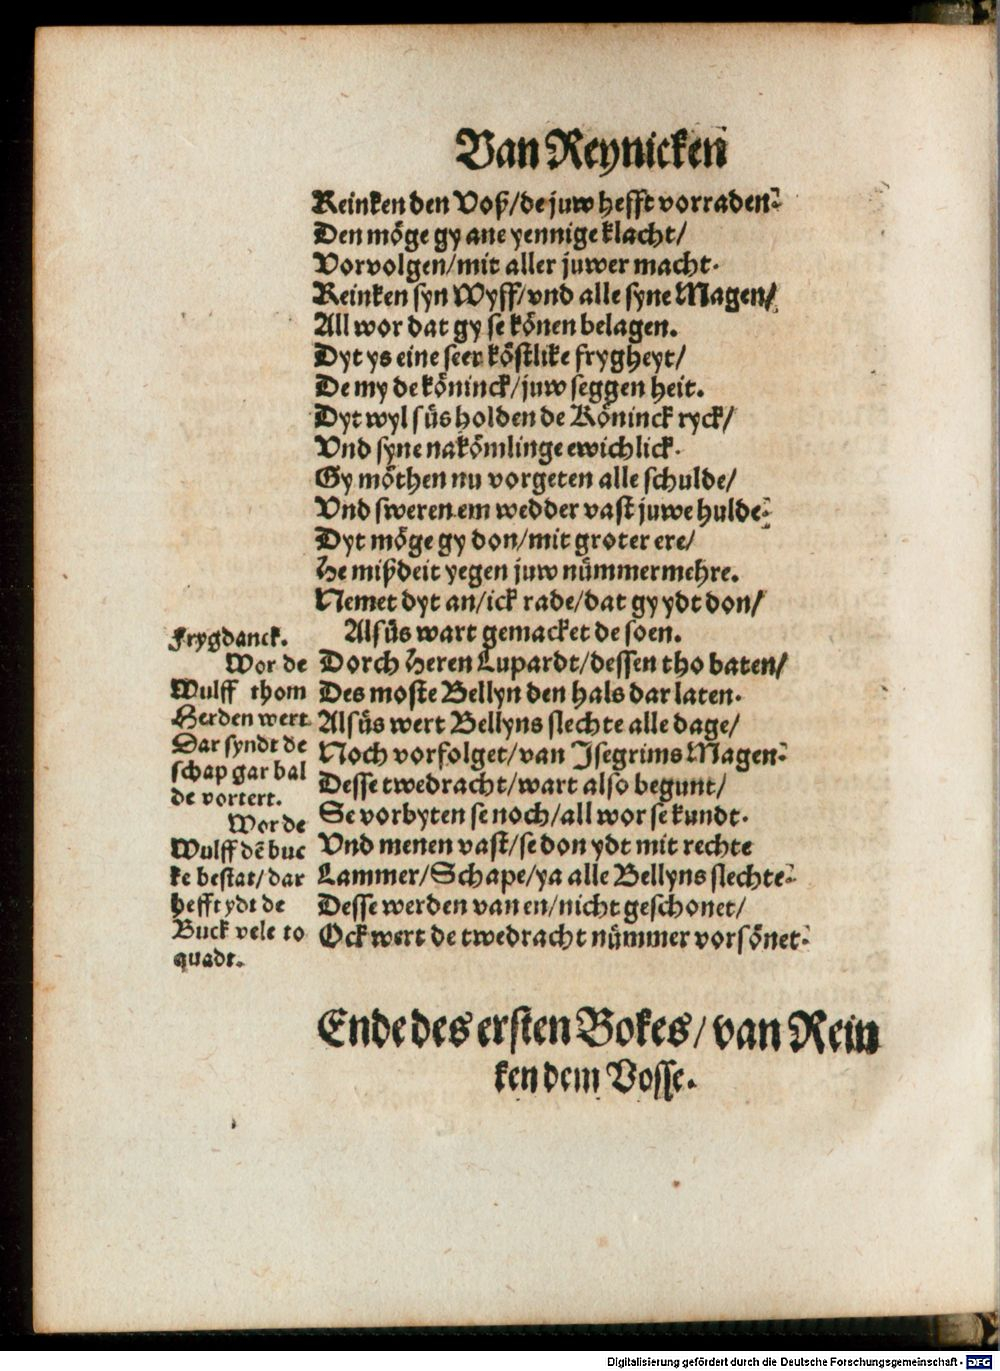 Van Reynicken
Reinken den Voß/de juw hefft vorraden.
Den möge gy ane yennige klacht/
Vorvolgen/mit aller juwer macht.
Reinken syn Wyff/vnd alle syne Magen/
All wor dat gy se könen belagen.
Dyt ys eine seer köstlike frygheyt/
De my de köninck/juw seggen heit.
Dyt wyl süs holden de Köninck ryck/
Vnd syne nakömlinge ewichlick.
Gy möthen nu vorgeten alle schulde/
Vnd sweren em wedder vast juwe hulde.
Dyt möge gy don/mit groter ere/
He mißdeit yegen juw nümmermehre.
Nemet dyt an/ick rade/dat gy ydt don/
Alsüs wart gemacket de soen.
Dorch Heren Lupardt/dessen tho baten/
Des moste Bellyn den hals dar laten.
Alsüs wert Bellyns slechte alle dage/
Noch vorfolget/van Jsegrims Magen.
Desse twedracht/wart also begunt/
Se vorbyten se noch/all wor se kundt.
Vnd menen vast/se don ydt mit rechte
Lammer/Schape/ya alle Bellyns slechte.
Desse werden van en/nicht geschonet/
Ock wert de twedracht nümmer vorsönet.
Frygdanck.
Wor de
Wulff thom
Herden wert
Dar syndt de
schap gar bal
de vortert.
Wor de
Wulff dē buc
ke bestat/dar
hefft ydt de
Buck vele to
quadt.
Ende des ersten Bokes/van Rein
ken dem Vosse.
Digitalisierung gefördert durch die Deutsche Forschungsgemeinschaft - DFG